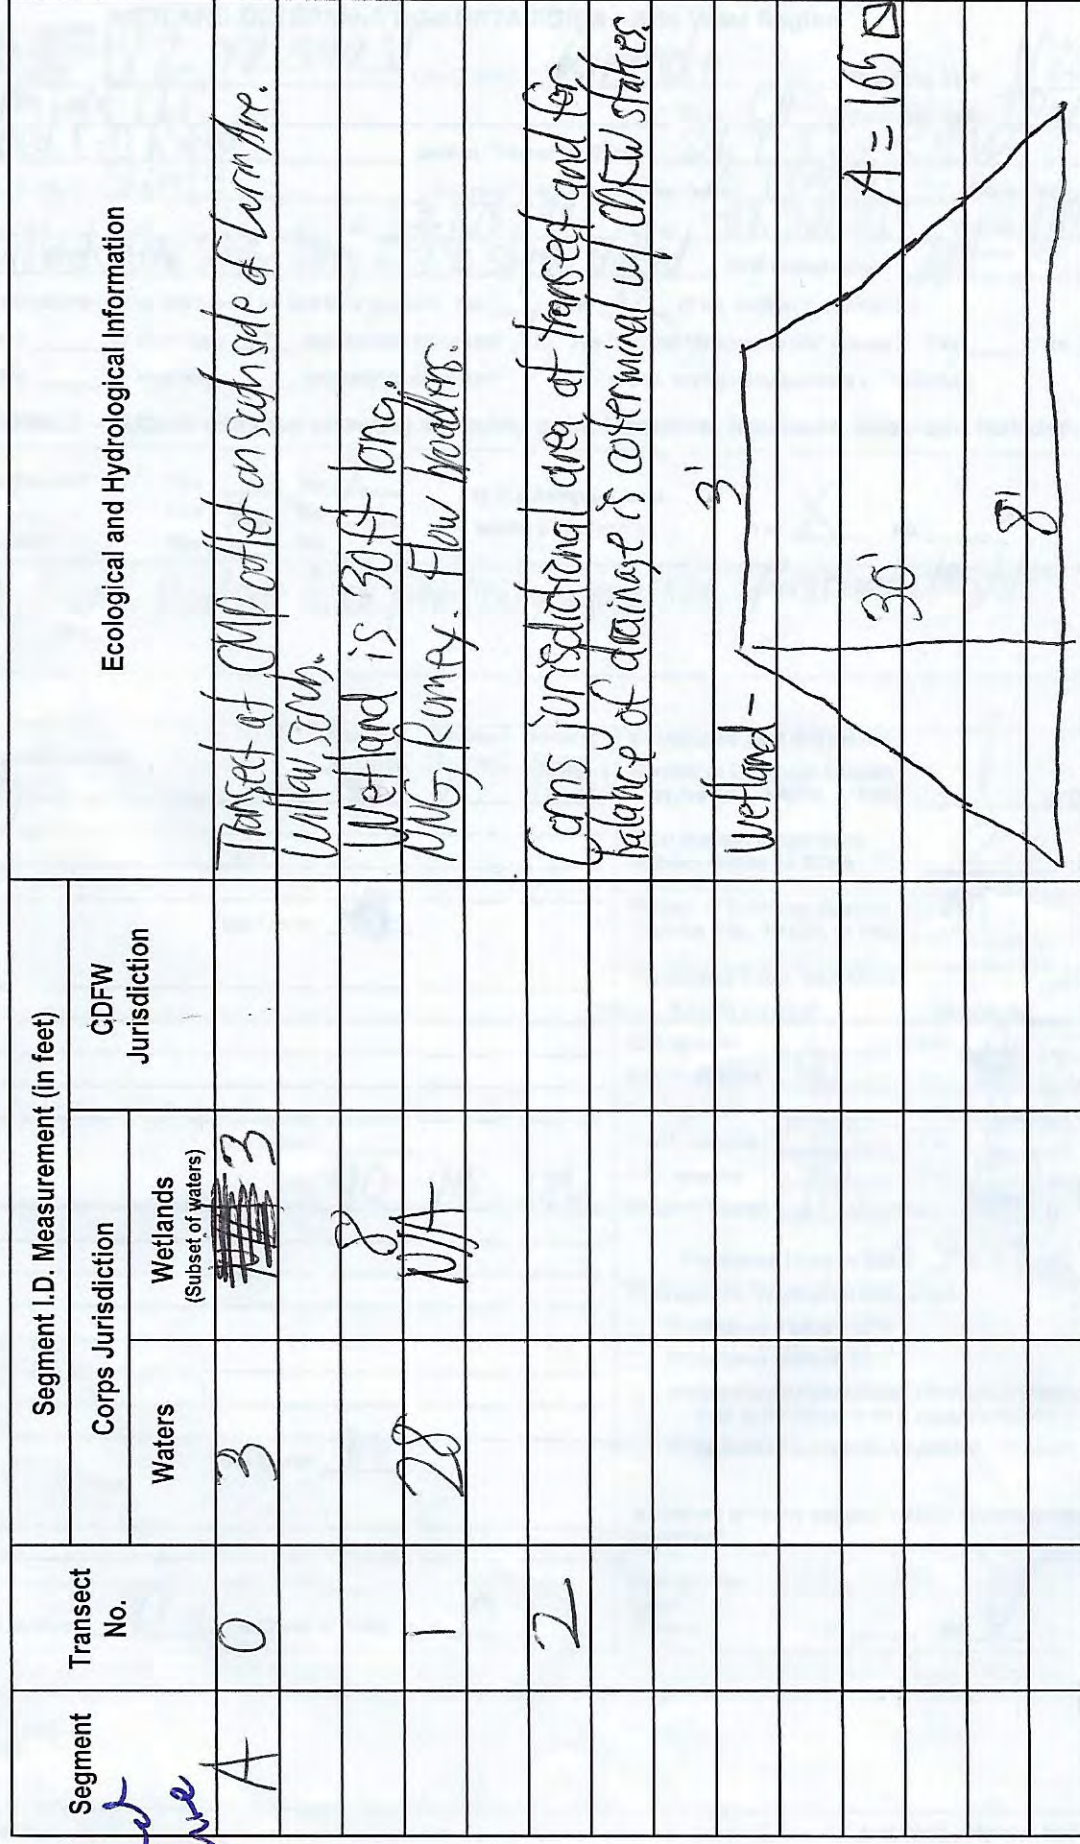 Segment I.D. Measurement (in feet)
Segment
Transect No.
Corps Jurisdiction
Waters
Wetlands
(Subset of waters)
CDFW Jurisdiction
Ecological and Hydrological Information
A 0 3 3 Transect at CMP outlet on south side of Ave.
Willow scrub.
8 Wetland is 30 ft long.
1 28 N/A NNG, Rumex. Flow broadens.
2 Corps jurisdictional area at transect and for
balance of drainage is coterminal w/ CDFW stakes.
Wetland - 3'
30' A = 165
8'